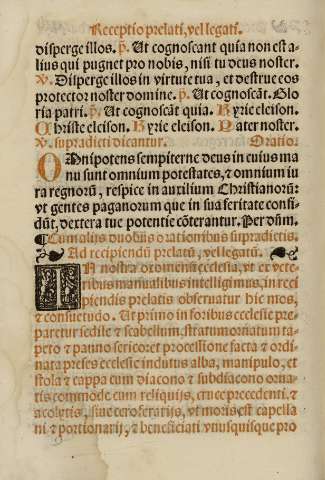 Receptio prelati, vel legati.
disperge illos. p̃. Ut cognoscant quia non est a-
lius qui pugnet pro nobis, nisi tu deus noster.
v. Disperge illos in virtute tua, et destrue eos
protector noster domine. p̃. Ut cognoscãt. Glo
ria patri. p̃. Ut cognoscãt quia. Kyrie eleison.
Christe eleison. Kyrie eleison. Pater noster.
v. supradicti dicantur. Oratio.
OMnipotens sempiterne deus in cuius ma
nu sunt omnium potestates, et omnium iu
ra regnorũ, respice in auxilium Christianorũ:
vt gentes paganorum que in sua feritate confi-
dũt, dextera tue potentie cõterantur. Per dñm.
¶ Cum aliis duobus orationibus supradictis.
Ad recipiendũ prelatũ, vel legatũ.
IN nostra oxomensi ecclesia, vt ex vete-
ribus manualibus intelligimus, in reci
piendis prelatis obseruatur hic mos,
et consuetudo. Ut primo in foribus ecclesie pre-
paretur sedile et scabellum, stratum ornatum ta-
peto et panno serico: et processione facta et ordi-
nata preses ecclesie indutus alba, manipulo, et
stola et cappa cum diacono et subdiacono orna-
tis commode cum reliquijs, cruce precedenti, et
acolytis, siue ceroferarijs, vt moris est capella
ni et portionarij, et beneficiati vnusquisque pro